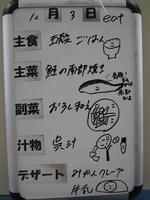 12月3日 eat
主食 五穀ごはん
主菜 鮭の南部焼き
副菜 おろし和え
汁物 呉汁
デザート みかんクレープ
牛乳